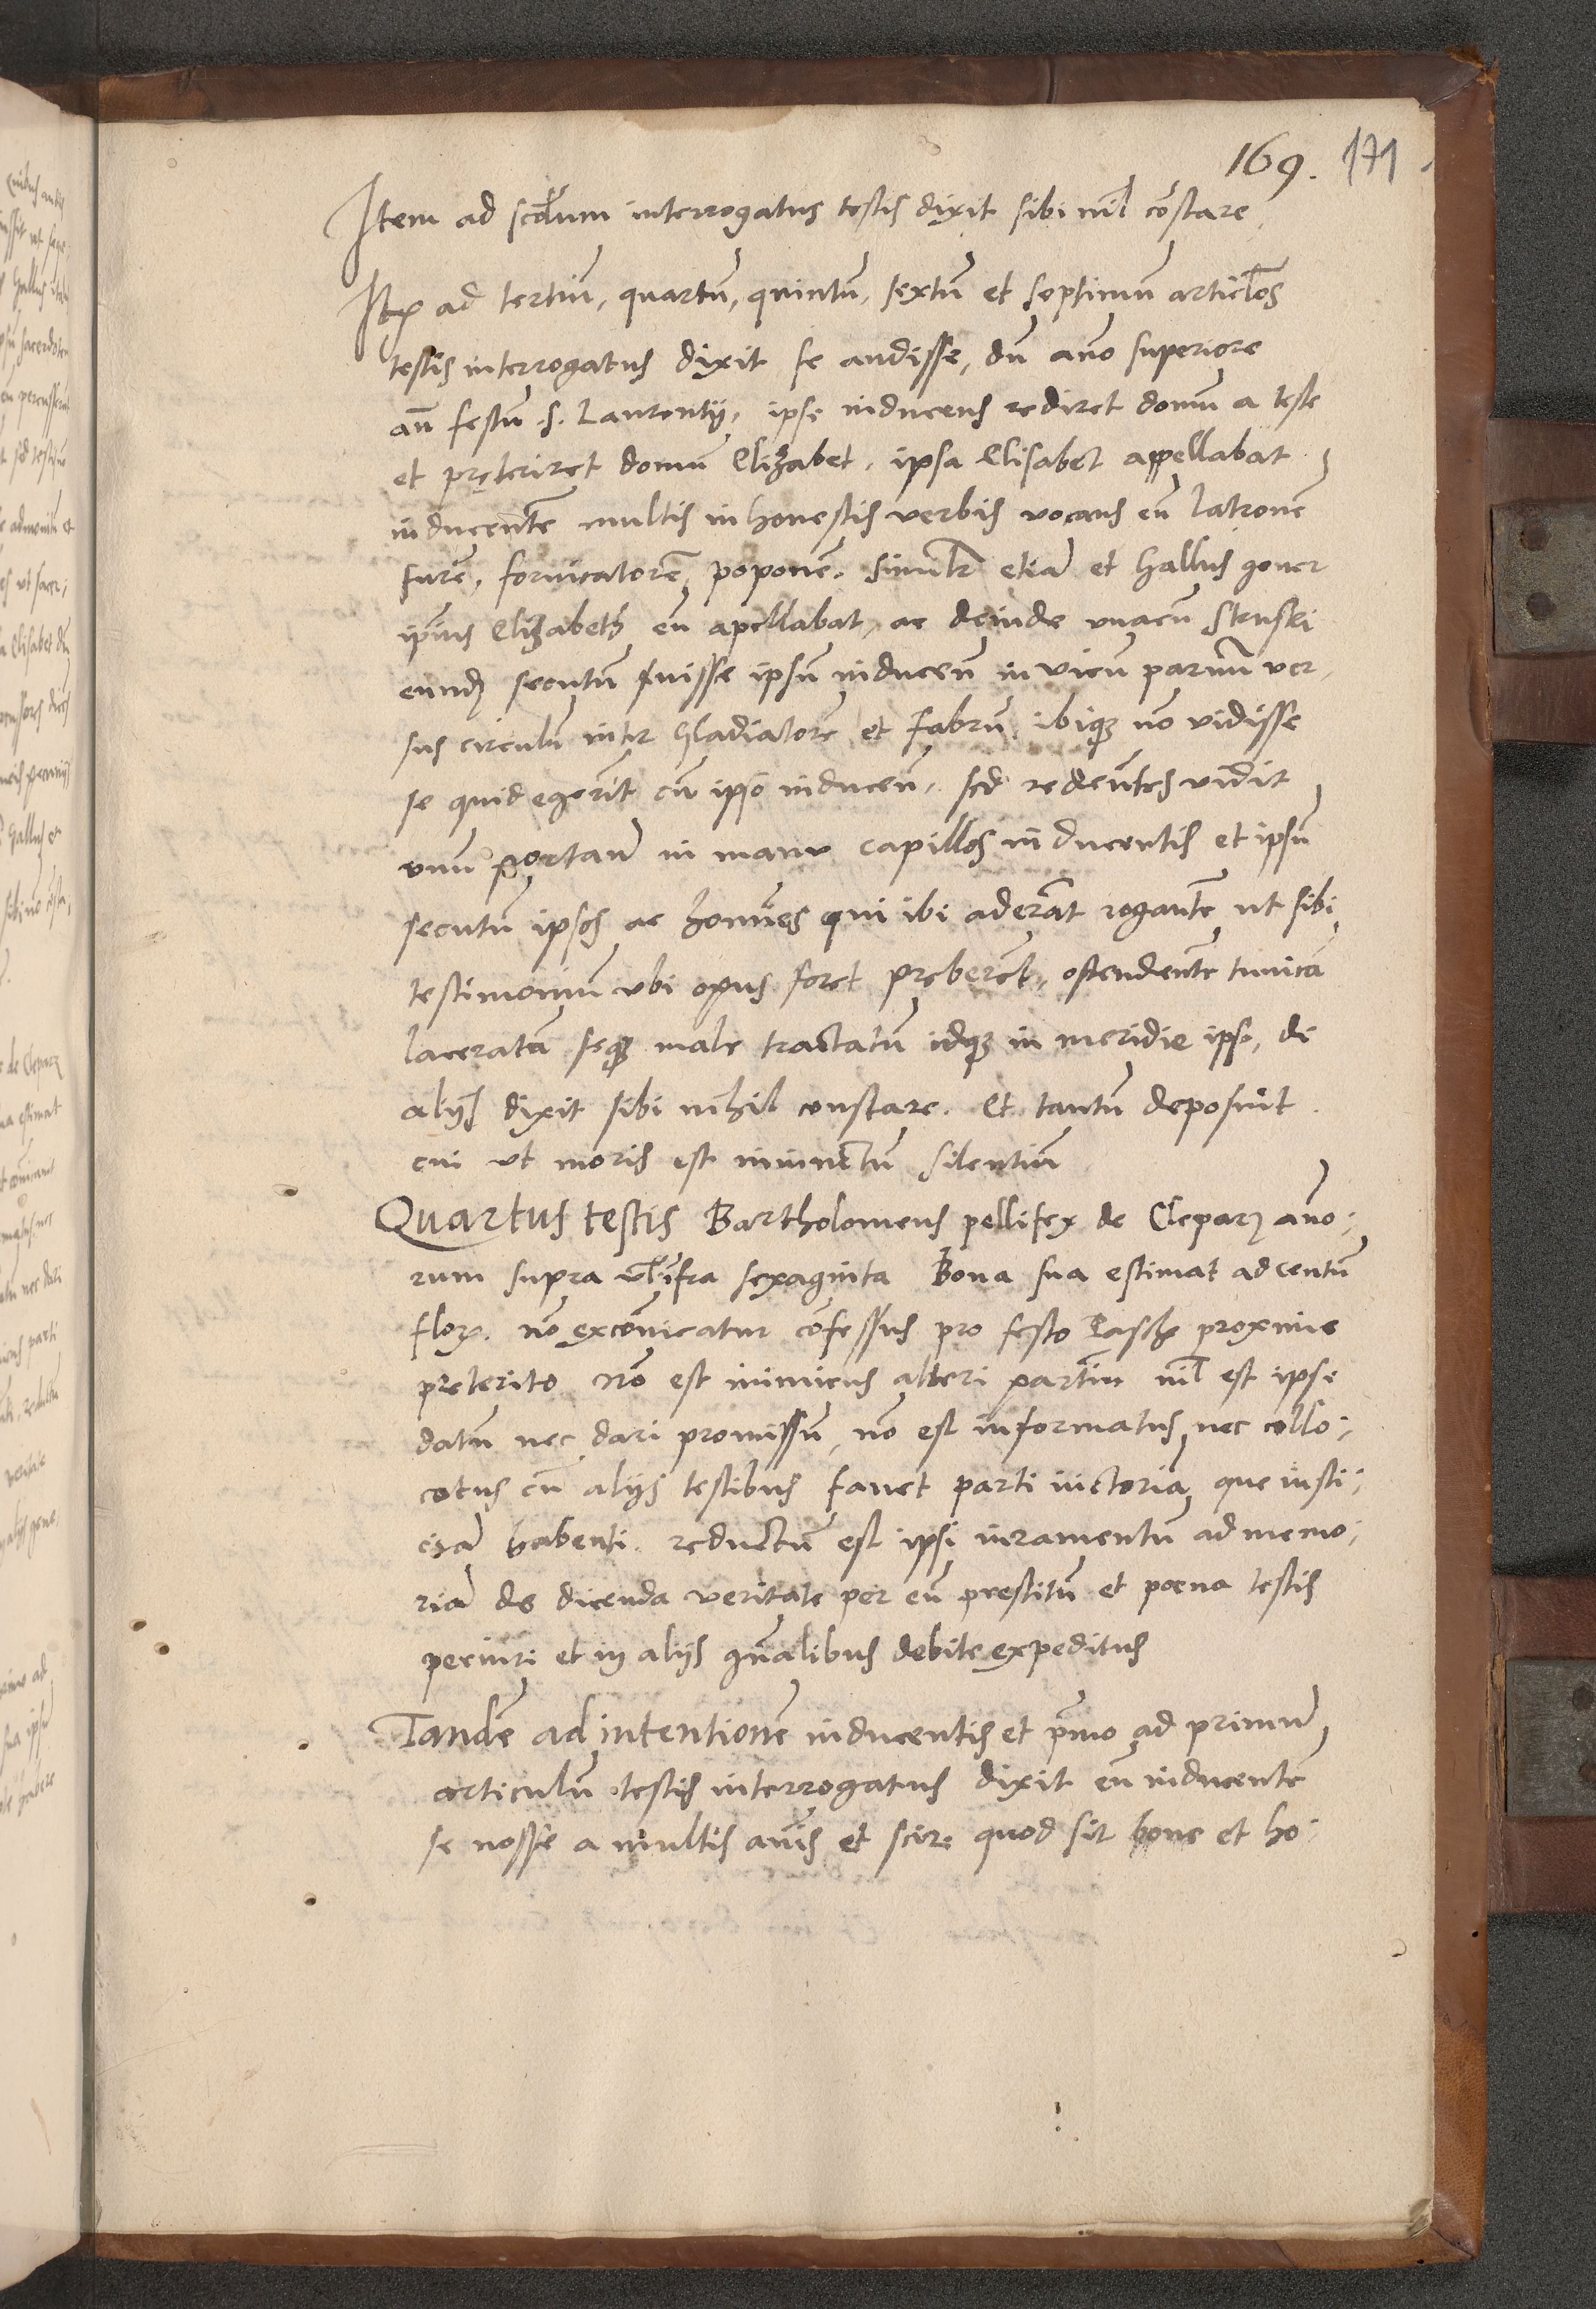 169. 171
Item ad scdum interrogatus testis dixit sibi nil cōstare
Itē ad tertiū, quartū, quintū, sextū et septimū articlos
testis interrogatus dixit se audisse, dū āno superiore
añ festū .s. Laurentij, ipse inducens rediret domū a teste
et pręteriret domū Elizabet, ipsa Elisabet appellabat
inducentē multis inhonestis verbis vocans eū latronē
furē, fornicatorē, poponē. Similr etiā et Hallus gener
ipius Elizabeth eū apellabat, ac deinde vnacū Struski
eundē secutū fuisse ipsū induceñ in vicū paruū ver,
sus circulū inter Gladiatorē et fabrū, ibiqz nō vidisse
se quid egerīt cū ipso induceñ, sed redeūtes vidit
vnū portare in manu capillos inducentis et ipsū
secutū ipsos ac homīes qui ibi aderāt rogantē ut sibi
testimoniū vbi opus foret pręberēt, ostendentē tunicā
laceratā seqz male tractatū idqz in meridie ipso, de
alijs dixit sibi nihil constare. Et tantū deposuit.
cui vt moris est iniunctū silentiū
Quartus testis Bartholomeus pellifex de Cleparz āno:
rum supra vl īfra sexaginta Bona sua estimat ad centū
flor. nō excōnicatur cōfessus pro festo Paschę proxime
pręterito nō est inimicus alteri partiū nil est ipse
datū nec dari promissū, nō est informatus nec collo:
cotus cū alijs testibus fauet parti victoriā que iusti:
ciā habenti. reductū est ipsi iuramentū ad memo:
riā de dicenda veritate per eū prestitū et poena testis
periuri et in alijs gñalibus debite expeditus
Tandē ad intentionē inducentis et prīmo ad primū
articulū testis interrogatus dixit eū inducentē
se nosse a multis añis et scire quod sit bone et ho: